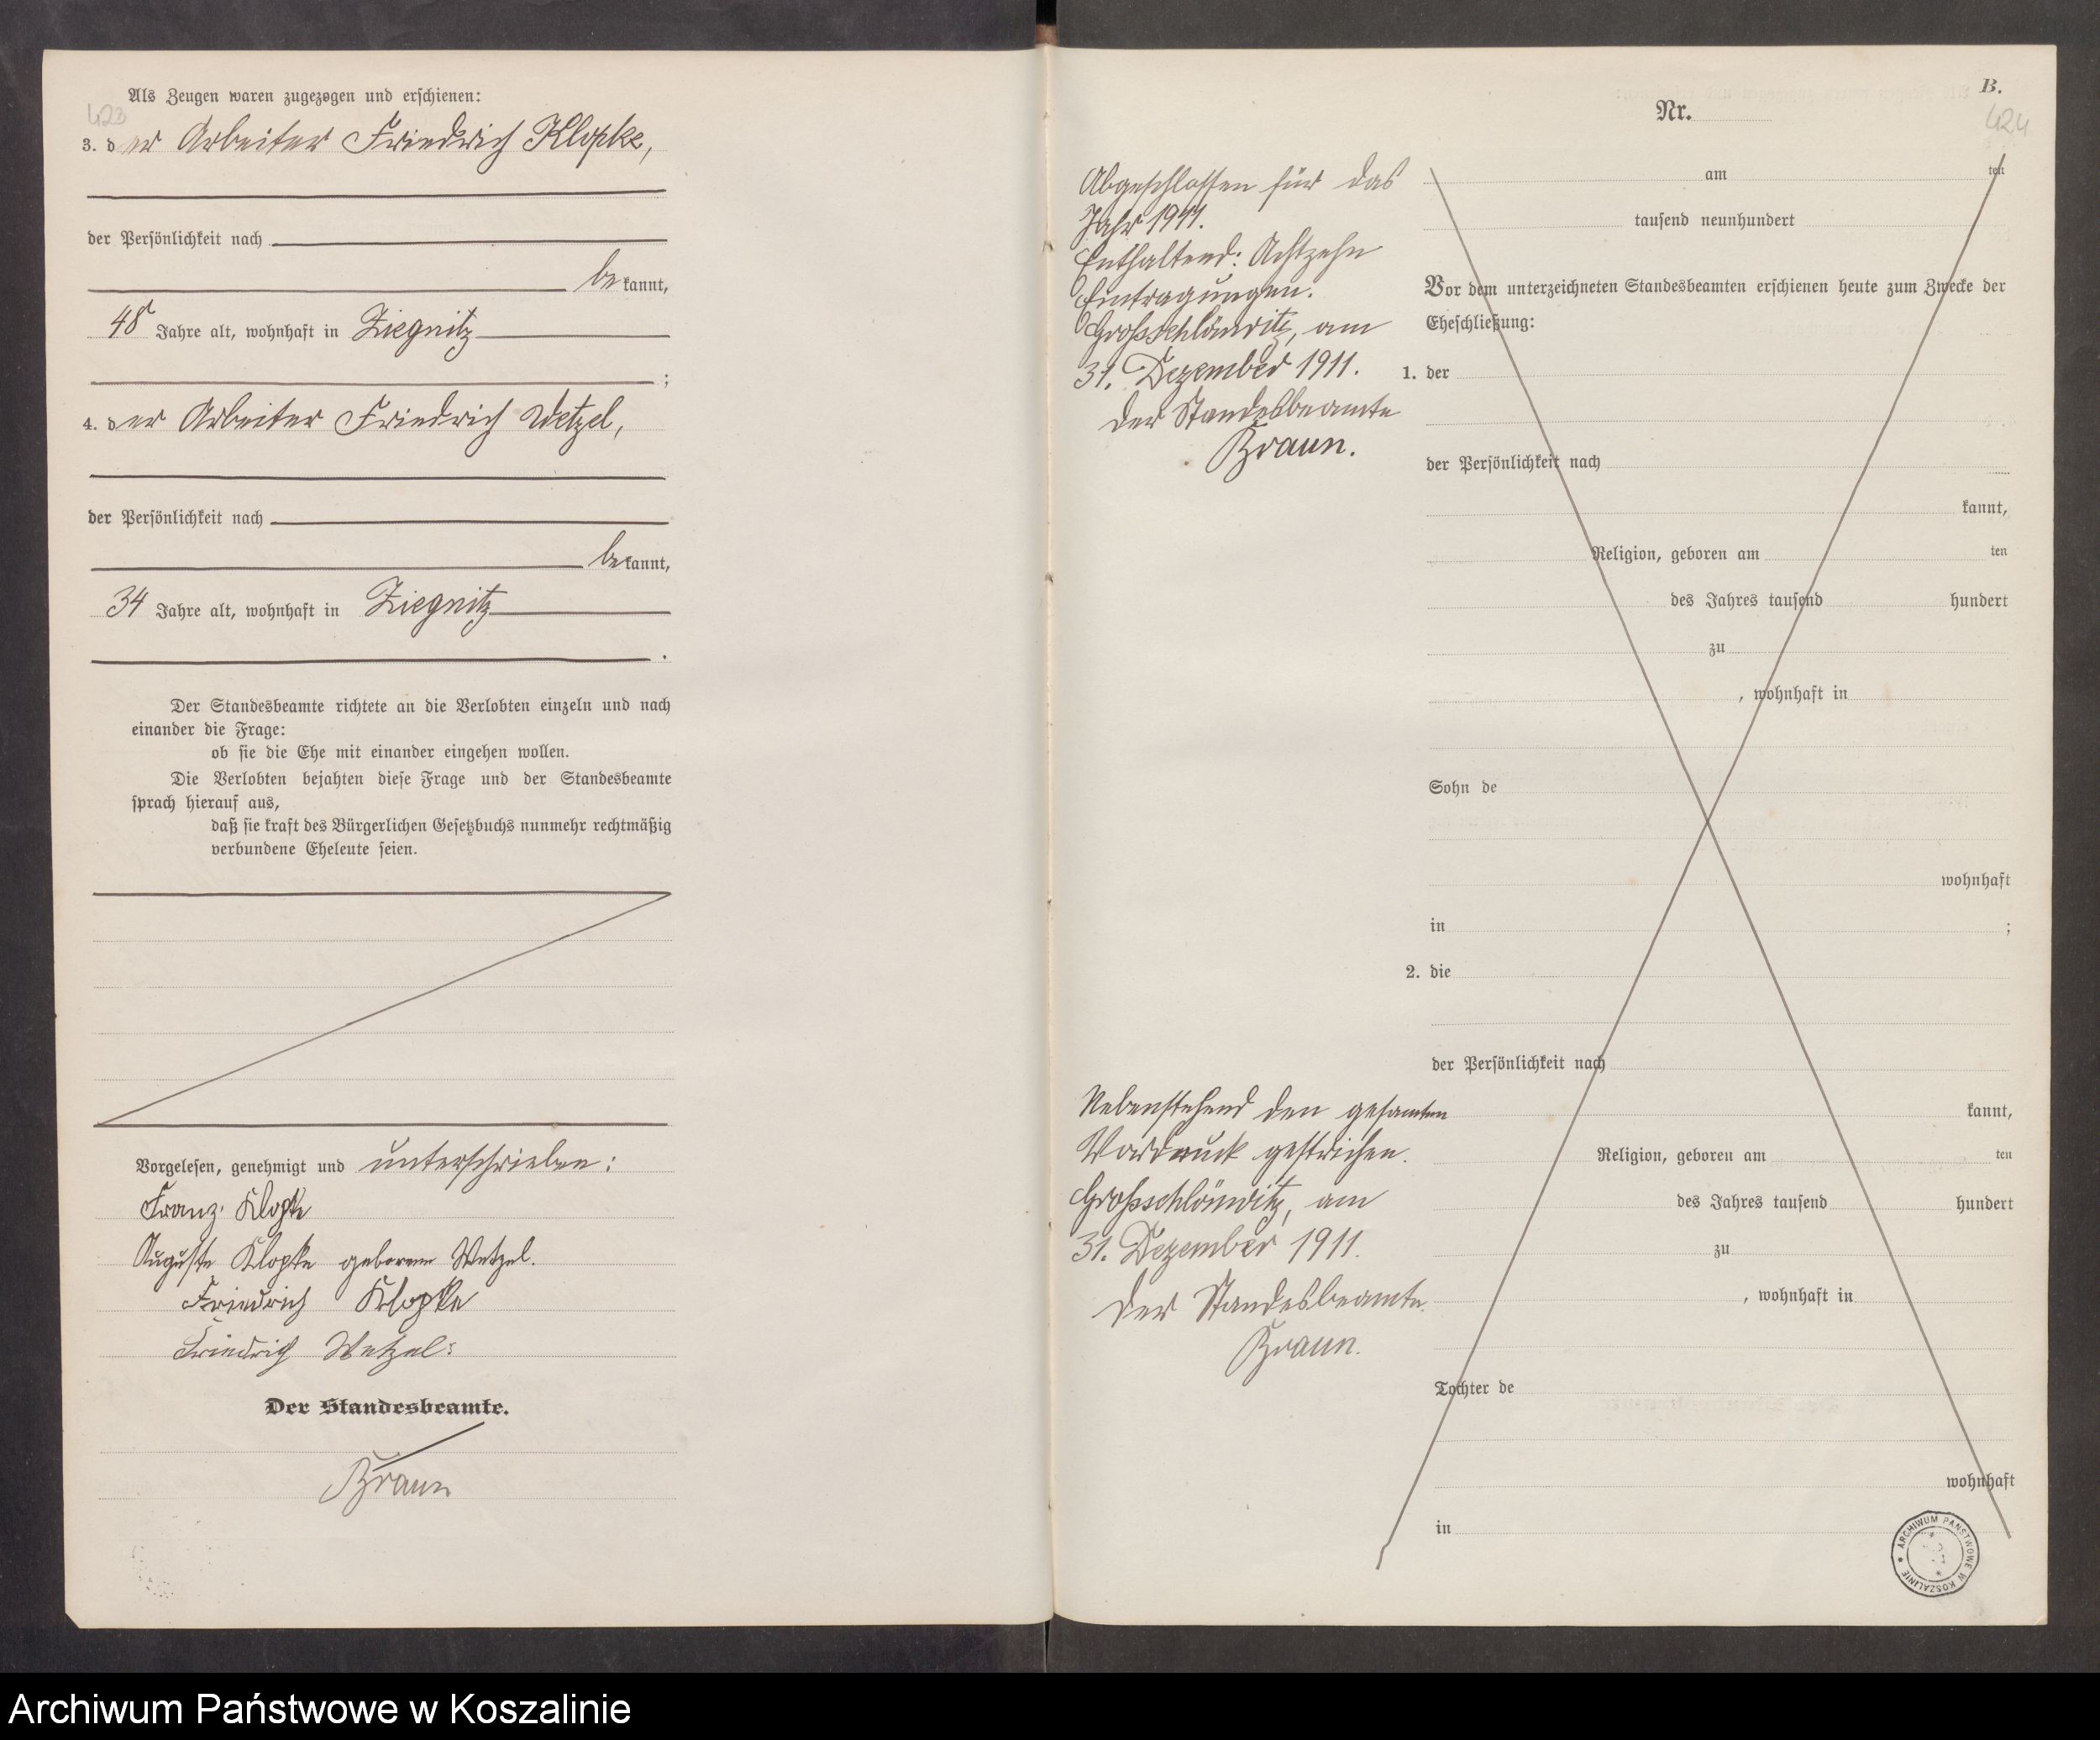 423
Als Zeugen waren zugezogen und erschienen:
3. der Arbeiter Friedrich Klopke,
der Persönlichkeit nach
bekannt,
48 Jahre alt, wohnhaft in Ziegnitz
;
4. der Arbeiter Friedrich Wetzel,
der Persönlichkeit nach
bekannt,
34 Jahre alt, wohnhaft in Ziegnitz
.
Der Standesbeamte richtete an die Verlobten einzeln und nach
einander die Frage:
ob sie die Ehe mit einander eingehen wollen.
Die Verlobten bejahten diese Frage und der Standesbeamte
sprach hierauf aus,
daß sie kraft des Bürgerlichen Gesetzbuchs nunmehr rechtmäßig
verbundene Eheleute seien.
Vorgelesen, genehmigt und unterschrieben:
Franz Klopke
Auguste Klopke geborene Wetzel.
Friedrich Klopke
Friedrich Wetzel
Der Standesbeamte.
Braun
B.
424
Nr.
Abgeschlossen für das
Jahr 1911.
Enthaltend: Achtzehn
Eintragungen.
Grossschlönwitz, am
31. Dezember 1911.
Der Standesbeamte
Braun.
am ten
tausend neunhundert
Vor dem unterzeichneten Standesbeamten erschienen heute zum Zwecke der
Eheschließung:
1. der
der Persönlichkeit nach
kannt,
Religion, geboren am ten
des Jahres tausend hundert
zu
, wohnhaft in
Sohn de
wohnhaft
in ;
2. die
der Persönlichkeit nach
kannt,
Religion, geboren am ten
des Jahres tausend hundert
zu
, wohnhaft in
Tochter de
wohnhaft
in
Nebenstehend den gesamten
Vordruck gestrichen.
Grossschlönwitz, am
31. Dezember 1911.
Der Standesbeamte.
Braun.
ARCHIWUM PAŃSTWOWE W KOSZALINIE
Archiwum Państwowe w Koszalinie